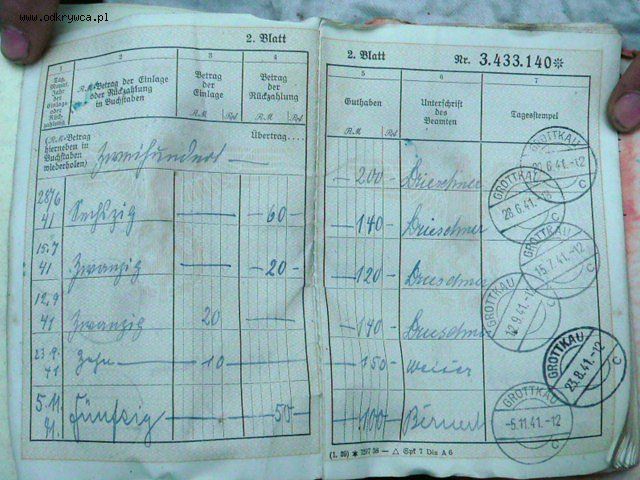 www.odkrywca.pl
2. Blatt
1 2 3 4
Tag, Monat, Jahr der Einlage oder Rückzahlung
R.M-Betrag der Einlage oder Rückzahlung in Buchstaben
Betrag der Einlage
Betrag der Rückzahlung
R.M Rpf R.M Rpf
(R.M-Betrag hierneben in Buchstaben wiederholen)
Übertrag...
Zweihundert
28/6 41 Sechszig — 60 —
15.7 41 Zwanzig — 20 —
12.9 41 Zwanzig 20 —
23.9. 41 Zehn — 10 —
5.11. 41. Fünfzig — 50 —
2. Blatt Nr. 3.433.140*
5 6 7
Guthaben
Unterschrift des Beamten
Tagesstempel
R.M Rpf
— 200 — Drieschner
— 140 — Drieschner
— 120 — Drieschner
— 140 — Drieschner
— 150 —
— 100 —
GROTTKAU 28.6.41.-12 c
GROTTKAU 28.6.41. c
GROTTKAU 15.7.41.-12 c
GROTTKAU 12.9.41.-12
GROTTKAU 23.8.41.-12 c
GROTTKAU -5.11.41.-12 c